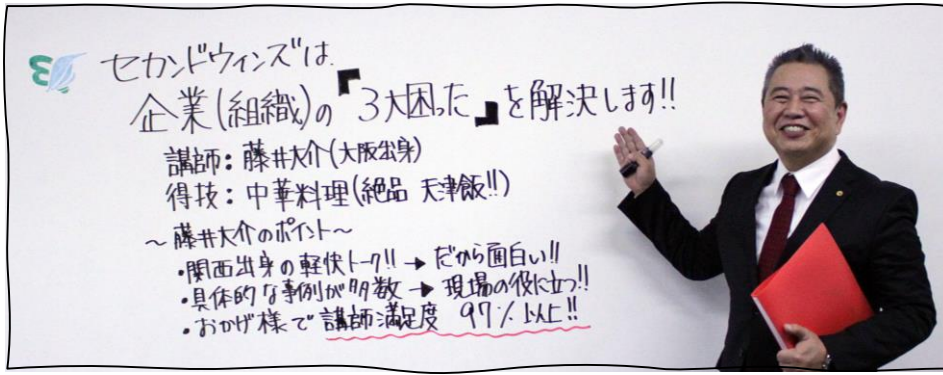 セカンドウィンズは
企業(組織)の『3大困った』を解決します!!
講師：藤井大介(大阪出身)
得技：中華料理(絶品 天津飯!!)
～藤井大介のポイント～
・関西出身の軽快トーク!!→だから面白い!!
・具体的な事例が多数→現場の役に立つ!!
・おかげ様で講師満足度 97%以上!!